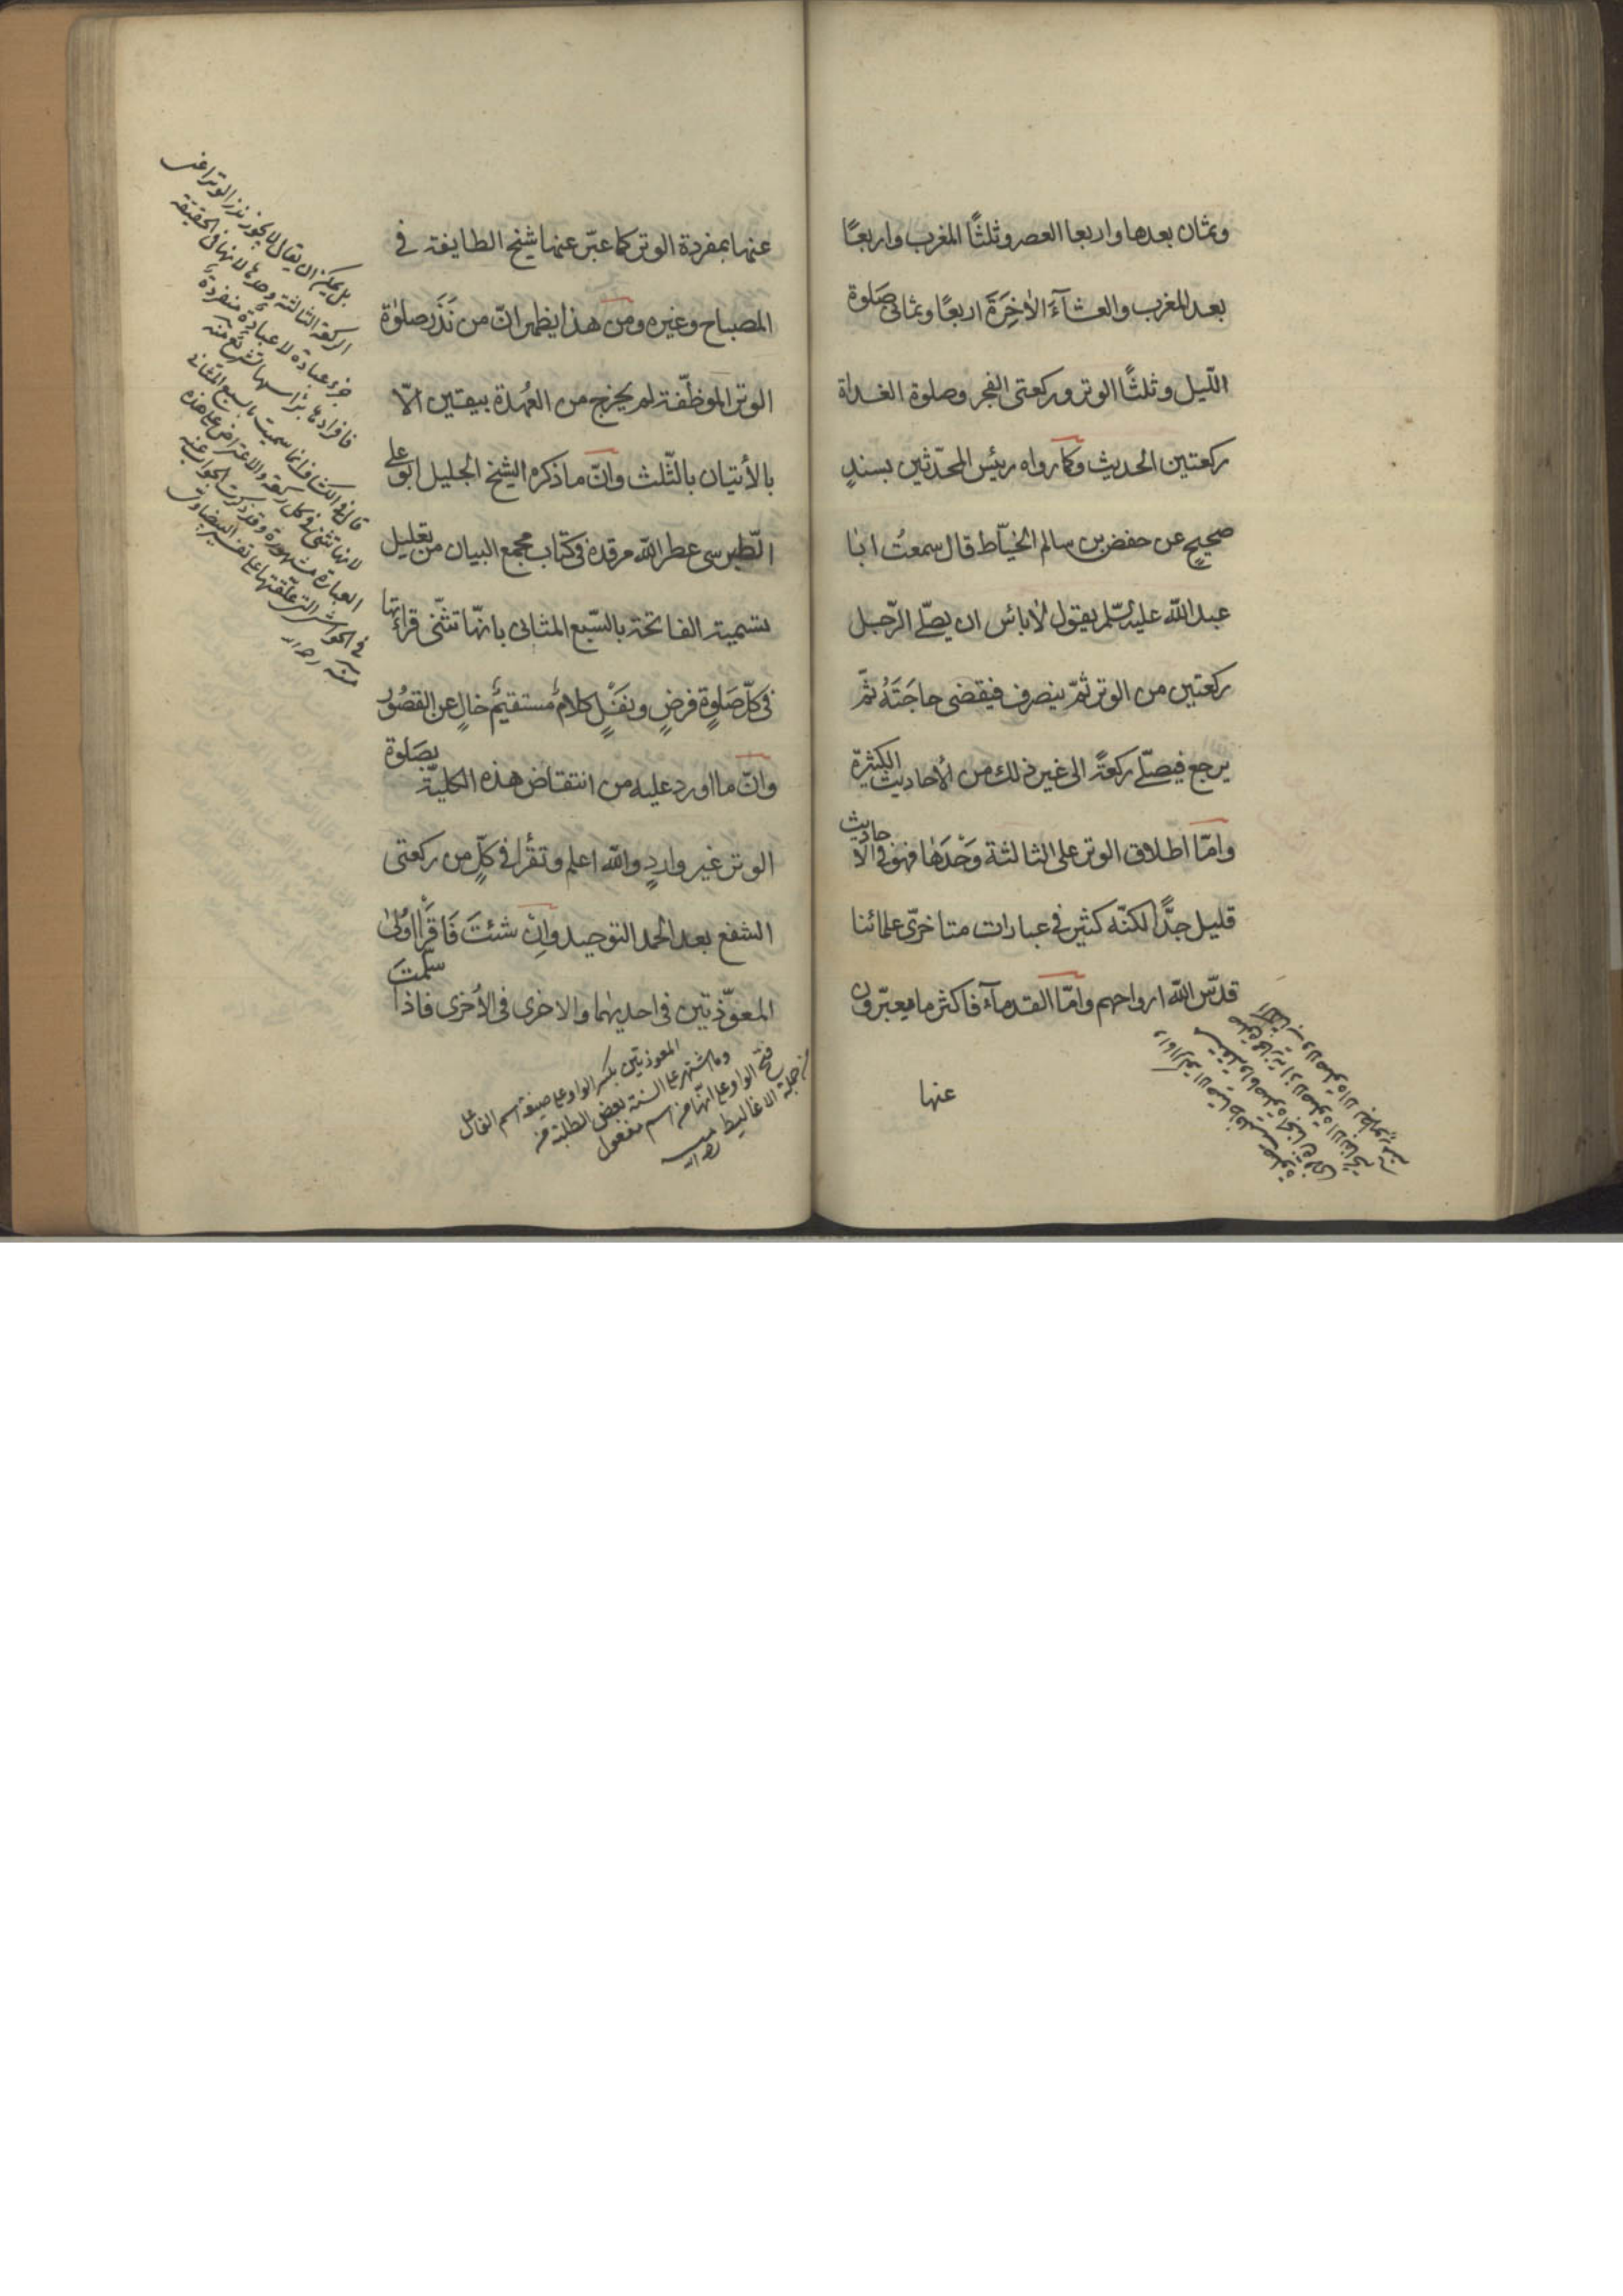 وثمان بعدها واربعا العصر وثلثًا المغرب واربعًا
بعد المغرب والعشآءَ الاٰخِرَةَ اربعًا وثمانى صَلوة
اللّيل وثلثًا الوتر وركعتى الفجر وصلوة الغداة
ركعتين الحديث وكما رواه رئيس المحدّثين بسندٍ
صحيحٍ عن حفض بن سالم الخيّاط قال سمعتُ ابا
عبد اللّه عليه السّلم يقول لاٰ بائس ان يصلّے الرّجل
ركعتين من الوتر ثمّ ينصرف فيقضى حاجَتَهُ ثمّ
يرجع فيصلّے ركعةً الى غير ذلك من الأحاديث الكثيرة
وامّا اطلاق الوتر على الثالثة وَحْدَهٰا فهو فى الاحاديث
قليل جدًّا لكنّه كثير فى عبارات متاخرّى علمائنا
قدّس اللّه ارواحهم وامّا القدمآء فاكثر ما يعبّرون
عنها
عنها بمفردة الوتر كما عبّر عنها شيخ الطايفة فى
المصباح وغيره ومن هذا يظهر انّ من نَذَرَ صلوٰة
الوتر الموظّفة لم يخرج من العُهدة بيقين الاّ
بالأتيان بالثّلث وانّ ما ذكره الشيخ الجليل ابو على
الطّبرسى عطر اللّه مرقده فى كتاب مجمع البيان من تعليل
تسمية الفاتحة بالسّبع المثانى بانّها تثنّى قرائتها
فى كلّ صَلوٰةٍ فرضٍ ونفَلٍ كلامٌ مستقيمٌ خالٍ عن القصُور
وانّ ما اورد عليه من انتقاض هذه الكليّة بصَلوة
الوتر غير واردٍ واللّه اعلم وتقرأ فى كلٍّ من ركعتى
الشفع بعد الحمد التوحيد وانْ شئتَ فَاقرَأ اوُلىٰ
المعوّذتين فى احديهما والاخرى فى الاُخرى فاذا سلّمتَ
بل يمكن ان يقال لا يجوز نذر الوتر اعنى
الركعة الثالثة وحدها لانها فى الحقيقة
جزء عبادة لا عبادة منفردة
فافرادها براسها تشريع منه
قال فى الكشاف انما سميت بالسبع المثانى
لانها تثنى فى كل ركعة والاعتراض على هذه
العبارة مشهورة وقد ذكرت الجواب عنه
فى الحواشى التى علّقتها على تفسير البيضاوى
منه ره
المعوذتين بكسر الواو على صيغة اسم الفاعل
وما اشتهر على السنة بعض الطلبة من
فتح الواو على انّها من اسم مفعول
من جملة الاغاليط
منه ره